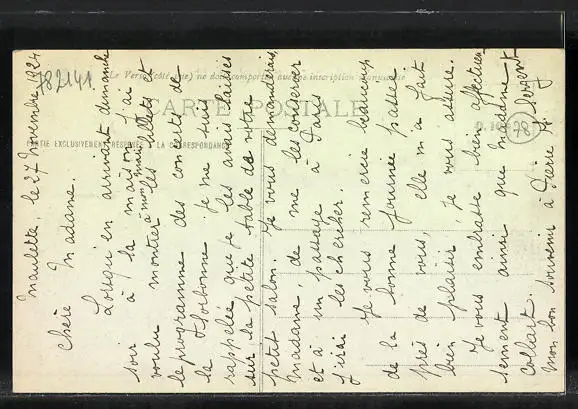 Maulette, le 27 Novembre 1924
Chère Madame.
Lorsqu'en arrivant dimanche
soir à la maison j'ai
voulu montrer les billets et
à mon mari
le programme des concerts de
la Sorbonne je me suis
rappelée que je les avais laissés
sur la petite table de votre
petit salon. Je vous demanderais,
madame, de me les conserver
et à un passage à Paris
j'irai les chercher.
Je vous remercie beaucoup
de la bonne journée passée
près de vous, elle m'a fait
bien plaisir, je vous assure.
Je vous embrasse bien affectueu
sement ainsi que madame
Collart.
mon bon souvenir à Pierre
782141
Le Verso (côté ne doit comporter aucune inscription
CARTE POSTALE
PARTIE EXCLUSIVEMENT RÉSERVÉE A LA CORRESPONDANCE
78